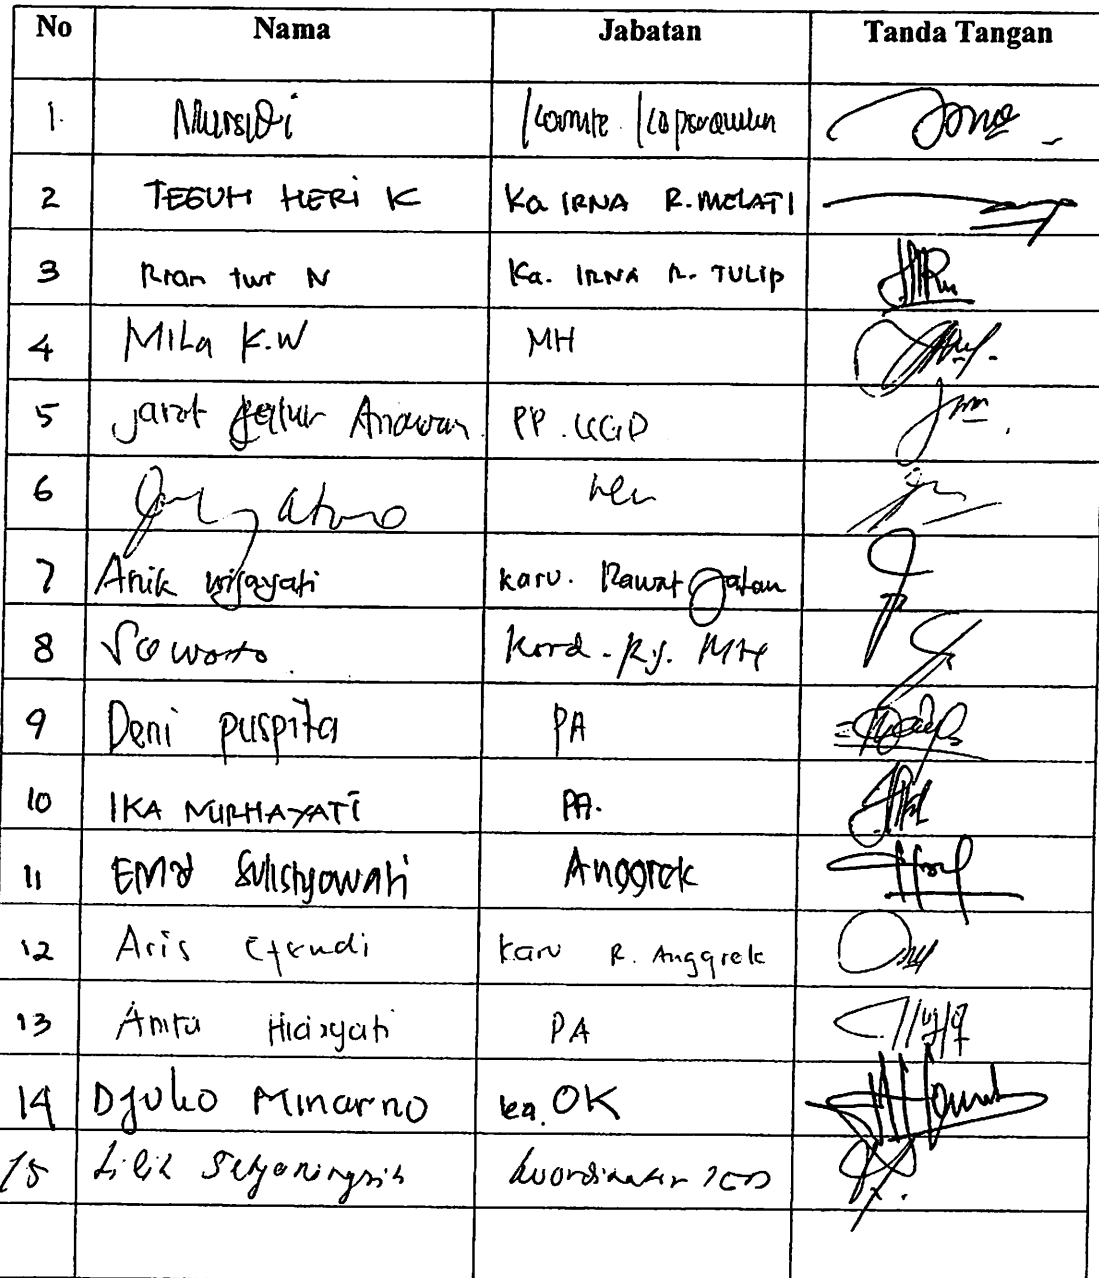 No Nama Jabatan Tanda Tangan
1. Mursidi Komite Keperawatan
2 TEGUH HERI K Ka IRNA R. MELATI
3 Rian twr N Ka. IRNA R. TULIP
4 MiLa K.W MH
5 Jarot Anawan PP. UGD
6
7 Anik wijayati karu. Rawat Jalan
8 Suwarto. Kord. Rj. MH
9 Deni puspita PA
10 IKA NURHAYATi PA.
11 EMA Sulistyowati Anggrek
12 Aris Efendi karu R. Anggrek
13 Anita Hidayati PA
14 Djoko Minarno ka. OK
15 Lilik Setyaningsih koordinator ICU